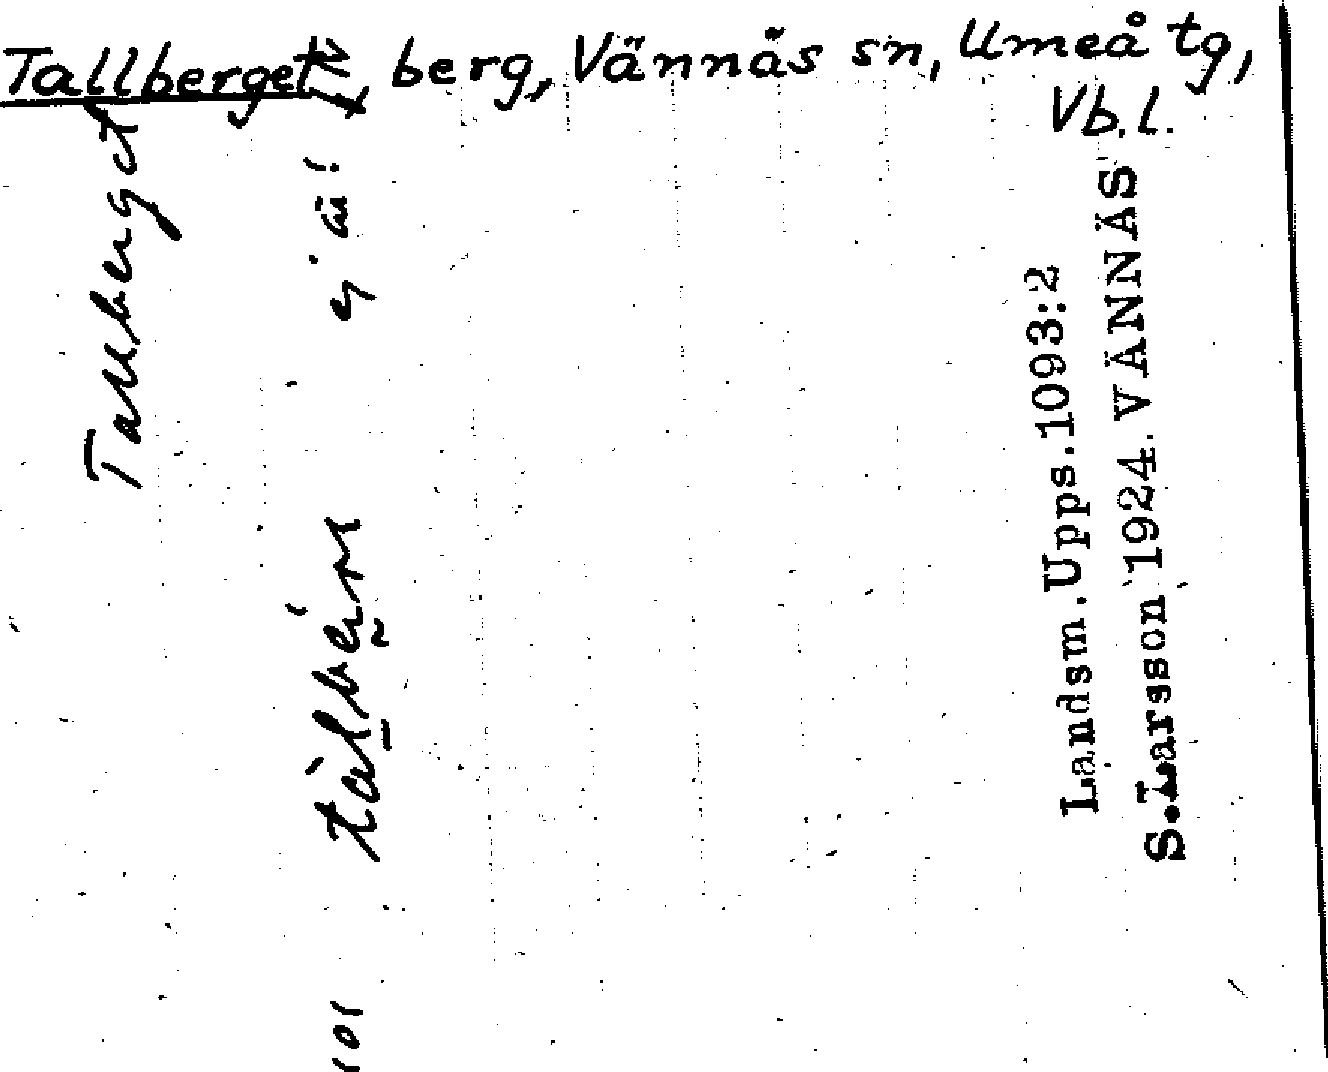 Tallberget, berg, Vännäs sn, Umeå tg,
Vb.l.
Tallberget
ej ä!
101
Landsm.Upps.1093:2
S.Larsson 1924. VÄNNÄS